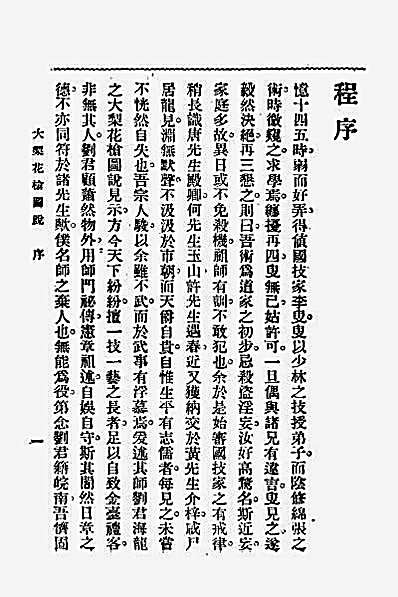 程序
憶十四五時。弱而好弄。得値國技家李叟。叟以少林之技授弟子。而陰修綿張之
術。時微窺之。求學焉。纏擾再四。叟無已。姑許可。一旦偶與諸兄有違言。叟見之。遂
毅然決絕。再三懇之。則曰。吾術爲道家之初步。忌殺盜淫妄。汝好高騖名。斯近妄。
家庭多故。異日或不免殺機。祖師有訓。不敢犯也。余於是始審國技家之有戒律。
稍長。識唐先生殿卿。何先生玉山。許先生遇春。近又獲納交於黃先生介梓。咸尸
居龍見。淵無默聲。不汲汲於市朝。而天爵自貴。自惟生平有志儒者。每見之。未嘗
不恍然自失也。吾宗人駿。以余雖不武。而於武事有浮慕焉。爰述其師劉君海龍
之大梨花槍圖說見示。方今天下紛紛。擅一技一藝之長者。足以自致金臺禮客。
非無其人。劉君顧蕭然物外。用師門祕傳。憲章祖述。自娛自守。斯其闇然日章之
德。不亦同符於諸先生歟。僕名師之棄人也。無能爲役。第念劉君籍皖南。吾儕固
大梨花槍圖說 序 一